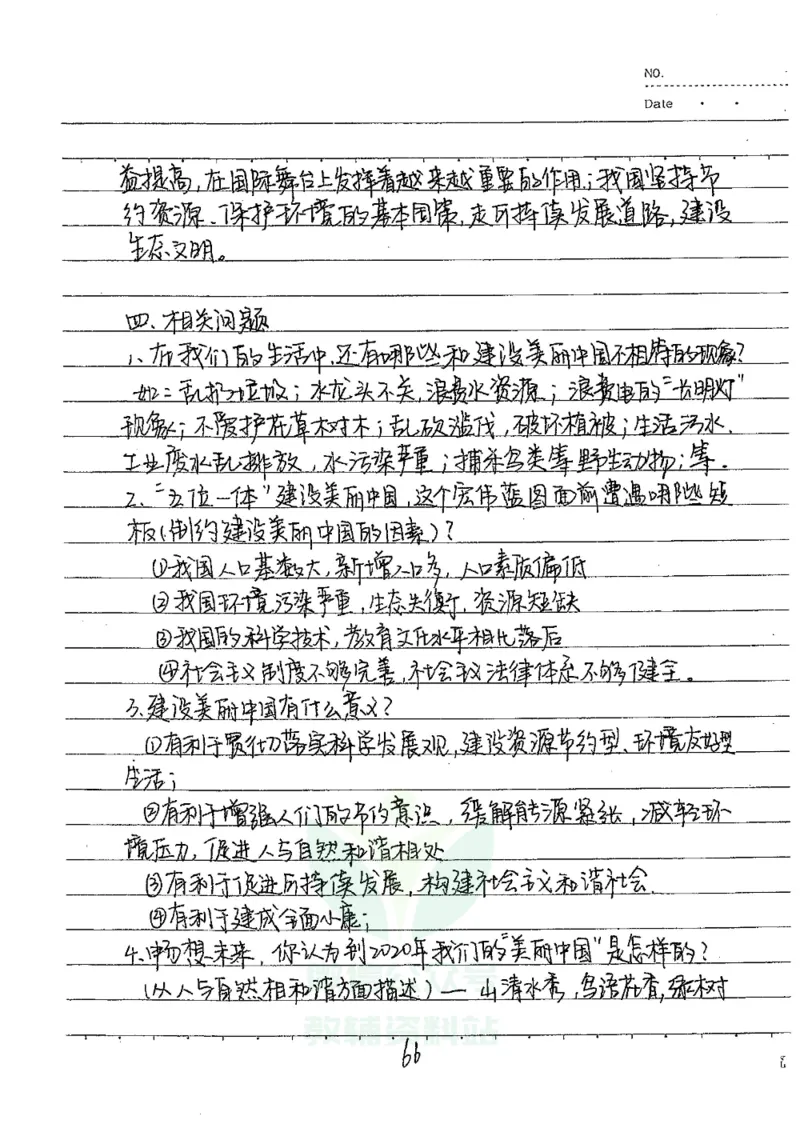 NO.
Date
益提高,在国际舞台上发挥着越来越重要的作用;我国坚持节
约资源、保护环境的基本国策,走可持续发展道路,建设
生态文明。
四、相关问题
1、在我们的生活中,还有哪些和建设美丽中国不相符的现象?
如:乱扔垃圾;水龙头不关,浪费水资源;浪费电的"长明灯"
现象;不爱护花草树木;乱砍滥伐,破坏植被;生活污水、
工业废水乱排放,水污染严重;捕杀鸟类等野生动物;等。
2、"五位一体"建设美丽中国,这个宏伟蓝图面前遭遇哪些短
板(制约建设美丽中国的因素)?
①我国人口基数大,新增人口多,人口素质偏低
②我国环境污染严重,生态失衡,资源短缺
③我国的科学技术,教育文化水平相比落后
④社会主义制度不够完善,社会主义法律体系不够健全。
3、建设美丽中国有什么意义?
①有利于贯彻落实科学发展观,建设资源节约型、环境友好型
生活;
②有利于增强人们的节约意识,缓解能源紧张,减轻环
境压力,促进人与自然和谐相处
③有利于促进可持续发展,构建社会主义和谐社会.
④有利于建成全面小康;
4、畅想未来,你认为到2020年我们的"美丽中国"是怎样的?
(从人与自然相和谐方面描述)— 山清水秀,鸟语花香,绿树
教辅资料站
66